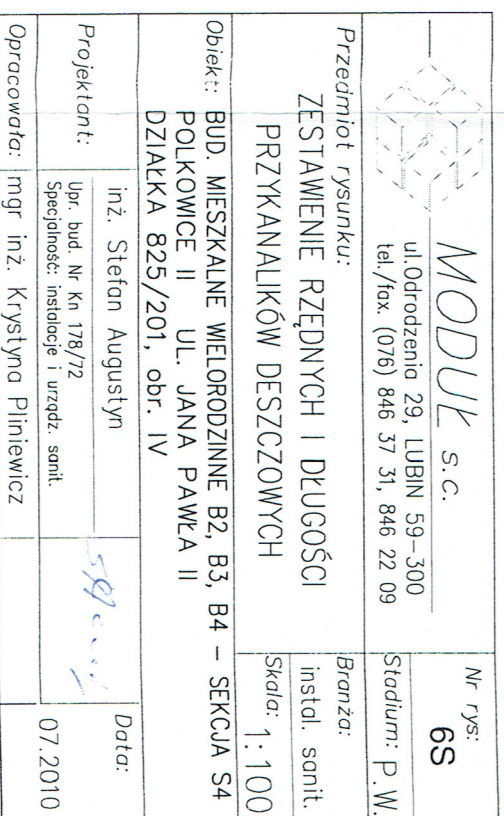 MODUŁ s.c.
ul.Odrodzenia 29, LUBIN 59-300
tel./fax. (076) 846 37 31, 846 22 09
Nr rys:
6S
Stadium: P.W.
Przedmiot rysunku:
ZESTAWIENIE RZĘDNYCH I DŁUGOŚCI
PRZYKANALIKÓW DESZCZOWYCH
Branża:
instal. sanit.
Skala: 1:100
Obiekt: BUD. MIESZKALNE WIELORODZINNE B2, B3, B4 – SEKCJA S4
POLKOWICE II UL. JANA PAWŁA II
DZIAŁKA 825/201, obr. IV
Projektant:
inż. Stefan Augustyn
Upr. bud. Nr Kn 178/72
Specjalność: instalacje i urządz. sanit.
Data:
07.2010
Opracowała: mgr inż. Krystyna Pliniewicz